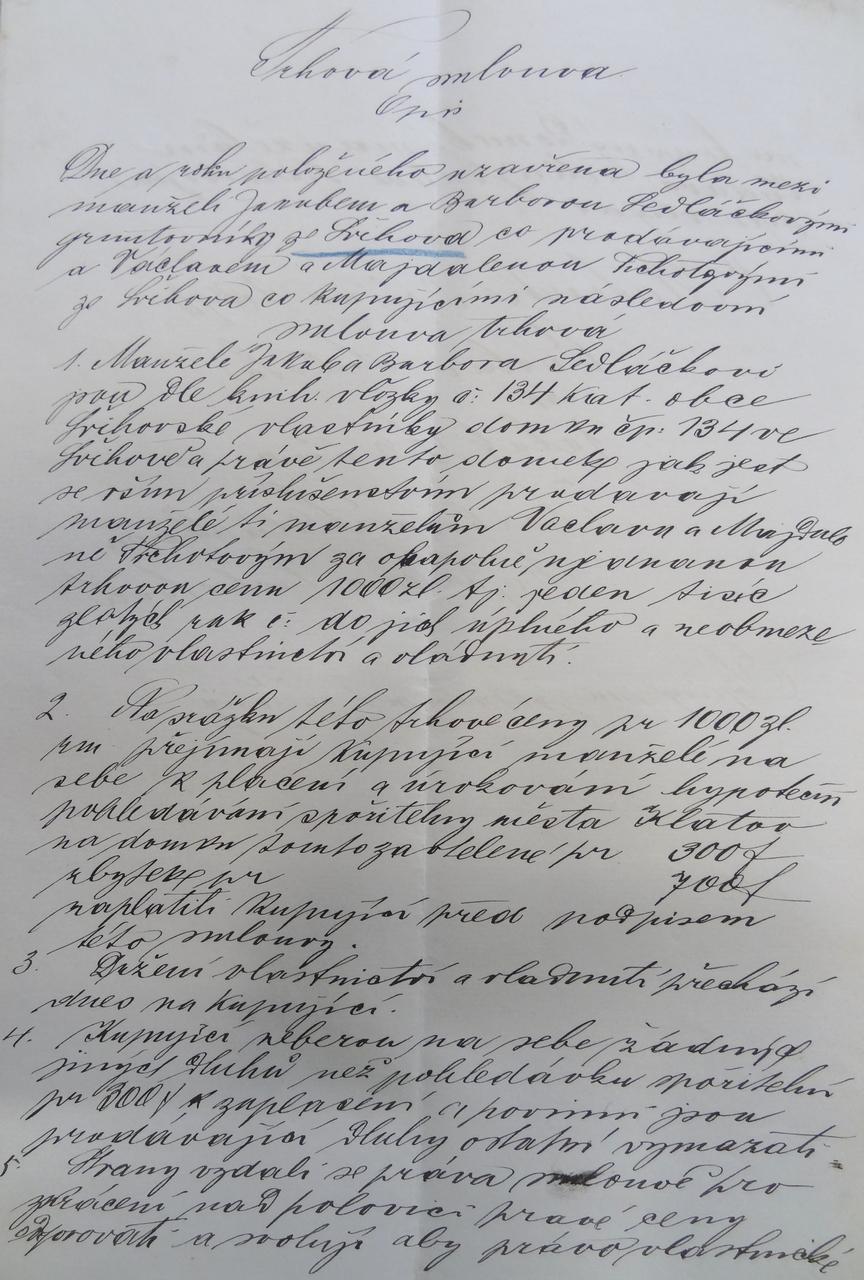 Trhová smlouva
Opis
Dne a roku položeného uzavřena byla mezi
manželi Jakubem a Barborou Sedláčkovými
gruntovníky ze Švihova co prodávajícími
a Václavem a Majdalenou
ze Švihova co kupujícími následovní
smlouva trhová
1. Manželé Jakub a Barbora Sedláčkovi
jsou dle knih. vložky č: 134 kat. obce
Švihovské vlastníky domku čp: 134 ve
Švihově a právě tento domek jak jest
se vším příslušenstvím prodávají
manželé ti manželům Václavu a Majdale
ně za okapolně ujednanou
trhovou cenu 1000 zl. tj. jeden tisíc
zlatých rak č: do jich úplného a neobmeze
ného vlastnictví a vládnutí.
2. Na srážku této trhové ceny pr 1000 zl.
rm přejímají kupující manželé na
sebe k placení a úrokování hypoteční
pohledávání spořitelny města Klatov
na domku tomto zavtělené pr 300 f
zbytek pr 700 f
zaplatili kupující před podpisem
této smlouvy.
3. Držení vlastnictví a vládnutí přechází
dnes na kupující.
4. Kupující neberou na sebe žádných
jiných dluhů než pohledávku spořitelní
pr 300 f k zaplacení a povinni jsou
prodávající dluhy ostatní vymazati
5 Strany vzdali se práva smlouvě pro
zkrácení nad polovici pravé ceny
odporovati a svolují aby právo vlastnické